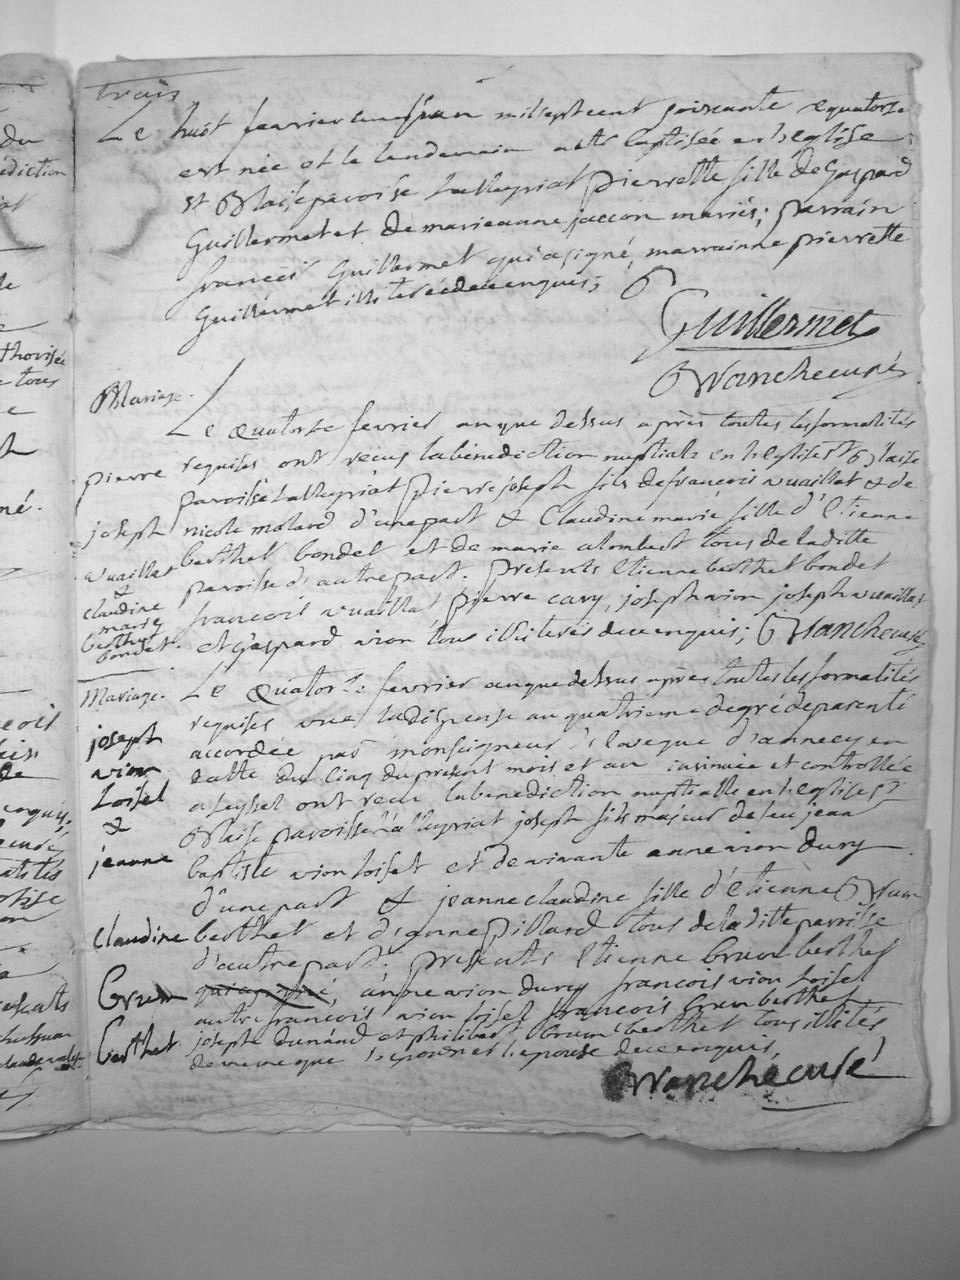 trois
Le huit fevrier mil sept cent soixante & quatorze
est née et le lendemain a été baptisée en l'eglise
st Blaise paroisse Lalleyriat pierrette fille de Gaspard
Guillermet et de marieanne jaccon mariés; parrain
francois Guillermet qui a signé, marrainne pierrette
Guillermet illiterée de ce enquis;
Guillermet
Blanche curé
Mariage.
pierre
joseph
wuaillat
&
claudine
marie
berthet
bondet.
Le quatorze fevrier an que dessus après toutes les formalités
requises ont recus la benediction nuptiale en l'eglise st Blaise
paroisse Lalleyriat pierre joseph fils de francois wuaillat & de
nicole molard d'une part & Claudine marie fille d'Etienne
berthet bondet et de marie alombert tous de la ditte
paroisse d'autre part. presents Etienne berthet bondet
francois wuaillat pierre cary, joseph vion joseph wuaillat
et Gaspard vion tous illiterés de ce enquis; Blanche curé
Mariage.
joseph
vion
Loisel
&
jeanne
claudine
Brun
berthet
Le quatorze fevrier an que dessus après toutes les formalités
requises vue la dispense au quatrieme degré de parenté
accordée par monseigneur l'eveque d'annecy en
datte du cinq du present mois et an insinuée et controllée
a seyssel ont recu la benediction nuptialle en l'eglise st
Blaise paroisse Lalleyriat joseph fils majeur de feu jean
baptiste vion loisel et de vivante anne vion dury
d'une part & jeanne claudine fille d'Etienne Brun
berthet et d'anne pillard tous de la ditte parroisse
d'autre part. presents Etienne brun berthet
qui a signé, anne vion dury francois vion loisel
autre francois vion loisel francois brun berthet
joseph dunand et philibert brun berthet tous illités
de meme que l'epoux et l'epouse de ce enquis,
Blanche curé